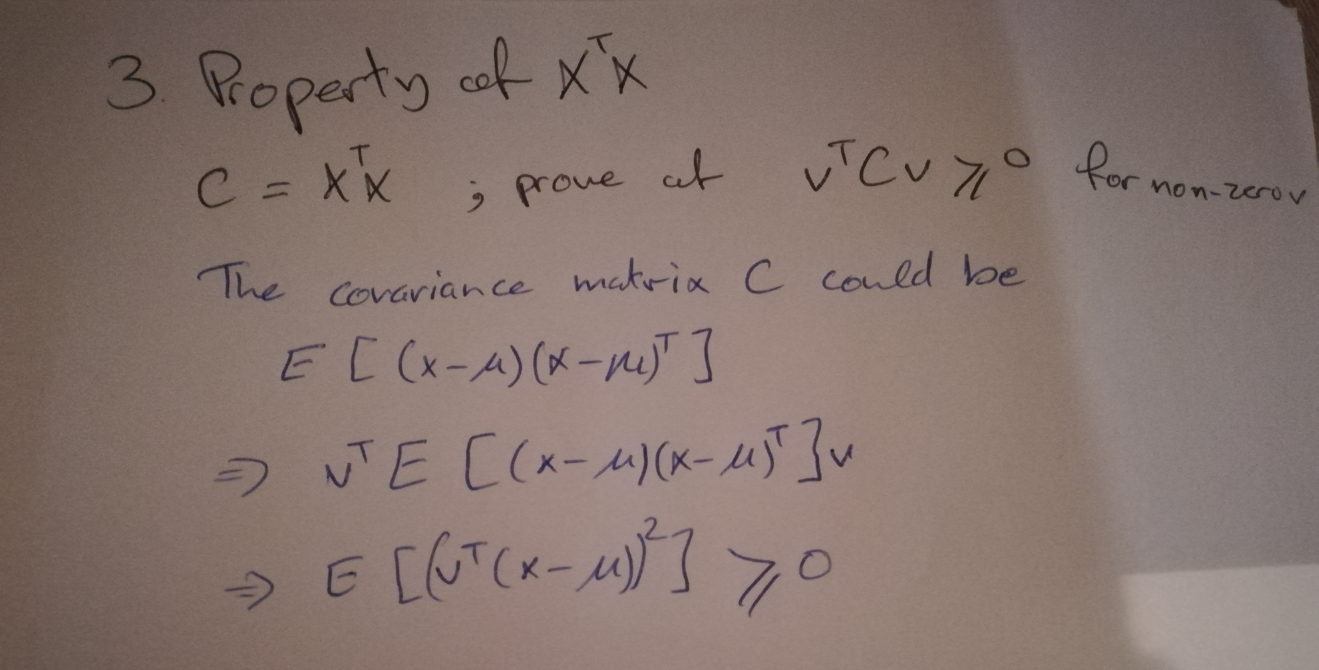 3. Property of XᵀX
C = XᵀX ; prove at vᵀCv ⩾ 0 for non-zero v
The covariance matrix C could be
E [(x-μ)(x-μ)ᵀ]
⇒ vᵀ E [(x-μ)(x-μ)ᵀ] v
⇒ E [(vᵀ(x-μ))²] ⩾ 0